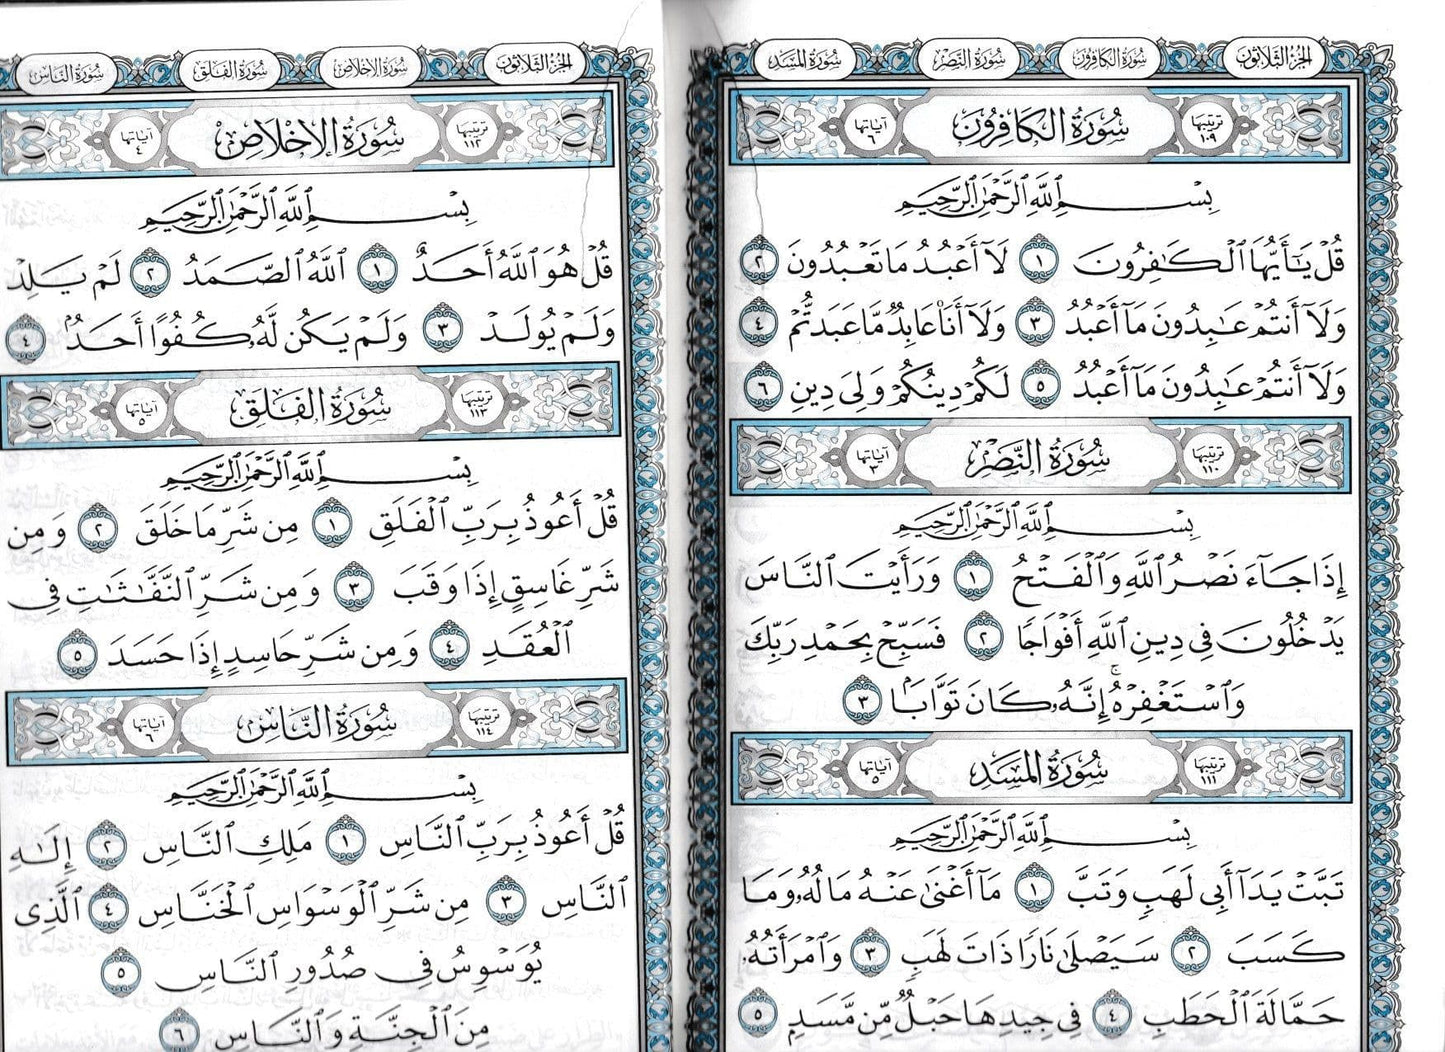 الجزء الثلاثون
سورة الكافرون
سورة النصر
سورة المسد
ترتيبها ١٠٩
سُورَةُ الكَافِرُونَ
آياتها ٦
بِسْمِ ٱللَّهِ ٱلرَّحْمَٰنِ ٱلرَّحِيمِ
قُلْ يَٰٓأَيُّهَا ٱلْكَٰفِرُونَ ١ لَآ أَعْبُدُ مَا تَعْبُدُونَ ٢
وَلَآ أَنتُمْ عَٰبِدُونَ مَآ أَعْبُدُ ٣ وَلَآ أَنَا۠ عَابِدٌ مَّا عَبَدتُّمْ ٤
وَلَآ أَنتُمْ عَٰبِدُونَ مَآ أَعْبُدُ ٥ لَكُمْ دِينُكُمْ وَلِىَ دِينِ ٦
ترتيبها ١١٠
سُورَةُ النَّصْرِ
آياتها ٣
بِسْمِ ٱللَّهِ ٱلرَّحْمَٰنِ ٱلرَّحِيمِ
إِذَا جَآءَ نَصْرُ ٱللَّهِ وَٱلْفَتْحُ ١ وَرَأَيْتَ ٱلنَّاسَ
يَدْخُلُونَ فِى دِينِ ٱللَّهِ أَفْوَاجًا ٢ فَسَبِّحْ بِحَمْدِ رَبِّكَ
وَٱسْتَغْفِرْهُ ۚ إِنَّهُۥ كَانَ تَوَّابًۢا ٣
ترتيبها ١١١
سُورَةُ المَسَدِ
آياتها ٥
بِسْمِ ٱللَّهِ ٱلرَّحْمَٰنِ ٱلرَّحِيمِ
تَبَّتْ يَدَآ أَبِى لَهَبٍ وَتَبَّ ١ مَآ أَغْنَىٰ عَنْهُ مَالُهُۥ وَمَا
كَسَبَ ٢ سَيَصْلَىٰ نَارًا ذَاتَ لَهَبٍ ٣ وَٱمْرَأَتُهُۥ
حَمَّالَةَ ٱلْحَطَبِ ٤ فِى جِيدِهَا حَبْلٌ مِّن مَّسَدٍۭ ٥
الجزء الثلاثون
سورة الإخلاص
سورة الفلق
سورة الناس
ترتيبها ١١٢
سُورَةُ الإِخْلَاصِ
آياتها ٤
بِسْمِ ٱللَّهِ ٱلرَّحْمَٰنِ ٱلرَّحِيمِ
قُلْ هُوَ ٱللَّهُ أَحَدٌ ١ ٱللَّهُ ٱلصَّمَدُ ٢ لَمْ يَلِدْ
وَلَمْ يُولَدْ ٣ وَلَمْ يَكُن لَّهُۥ كُفُوًا أَحَدٌۢ ٤
ترتيبها ١١٣
سُورَةُ الفَلَقِ
آياتها ٥
بِسْمِ ٱللَّهِ ٱلرَّحْمَٰنِ ٱلرَّحِيمِ
قُلْ أَعُوذُ بِرَبِّ ٱلْفَلَقِ ١ مِن شَرِّ مَا خَلَقَ ٢ وَمِن
شَرِّ غَاسِقٍ إِذَا وَقَبَ ٣ وَمِن شَرِّ ٱلنَّفَّٰثَٰتِ فِى
ٱلْعُقَدِ ٤ وَمِن شَرِّ حَاسِدٍ إِذَا حَسَدَ ٥
ترتيبها ١١٤
سُورَةُ النَّاسِ
آياتها ٦
بِسْمِ ٱللَّهِ ٱلرَّحْمَٰنِ ٱلرَّحِيمِ
قُلْ أَعُوذُ بِرَبِّ ٱلنَّاسِ ١ مَلِكِ ٱلنَّاسِ ٢ إِلَٰهِ
ٱلنَّاسِ ٣ مِن شَرِّ ٱلْوَسْوَاسِ ٱلْخَنَّاسِ ٤ ٱلَّذِى
يُوَسْوِسُ فِى صُدُورِ ٱلنَّاسِ ٥
مِنَ ٱلْجِنَّةِ وَٱلنَّاسِ ٦